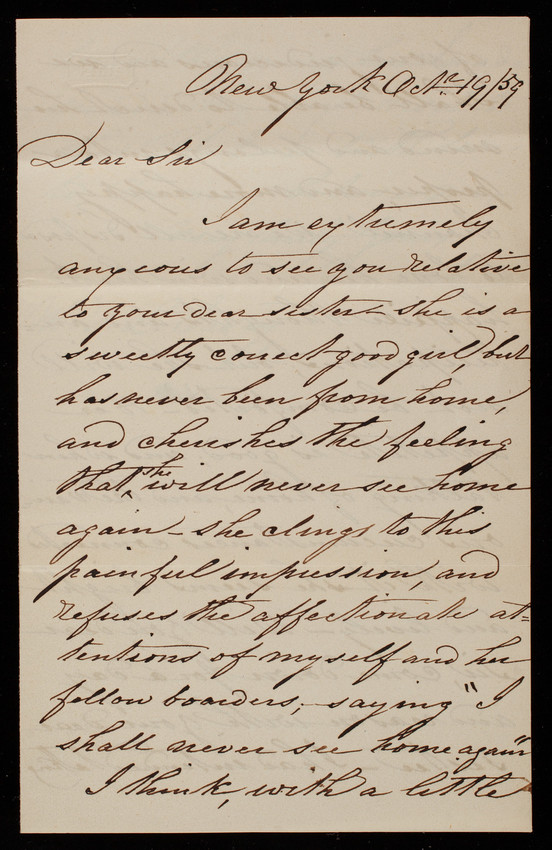 New York Octr. 19/59
Dear Sir
I am extremely
anxcous to see you relative
to your dear sister - she is a
sweetly correct good girl, but
has never been from home,
and cherishes the feeling
that she will never see home
again - she clings to this
painful impression, and
refuses the affectionate at=
tentions of myself and her
fellow boarders; saying "I
shall never see home again"
I think, with a little